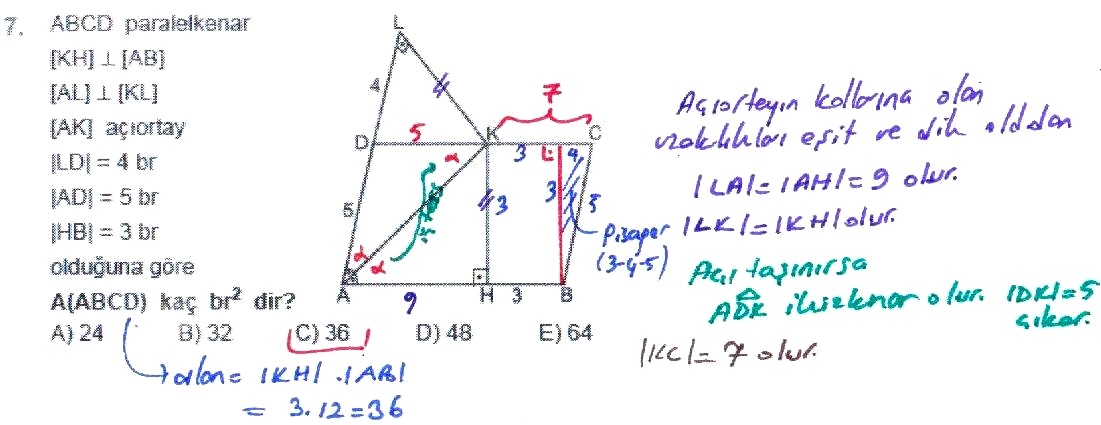 7. ABCD paralelkenar
[KH] ⊥ [AB]
[AL] ⊥ [KL]
[AK] açıortay
|LD| = 4 br
|AD| = 5 br
|HB| = 3 br
olduğuna göre
A(ABCD) kaç br² dir?
A) 24 B) 32 C) 36 D) 48 E) 64
alan = |KH| . |AB|
= 3.12 = 36
L
4
7
D 5 K 3 4 C
α
5 3 3 5
α
α
A 9 H 3 B
Pisagor
(3-4-5)
Açıortayın kollarına olan
uzaklıkları eşit ve dik olduğundan
|LA| = |AH| = 9 olur.
|LK| = |KH| olur.
Açı taşınırsa
ADK ikizkenar olur. |DK| = 5
çıkar.
|KC| = 7 olur.